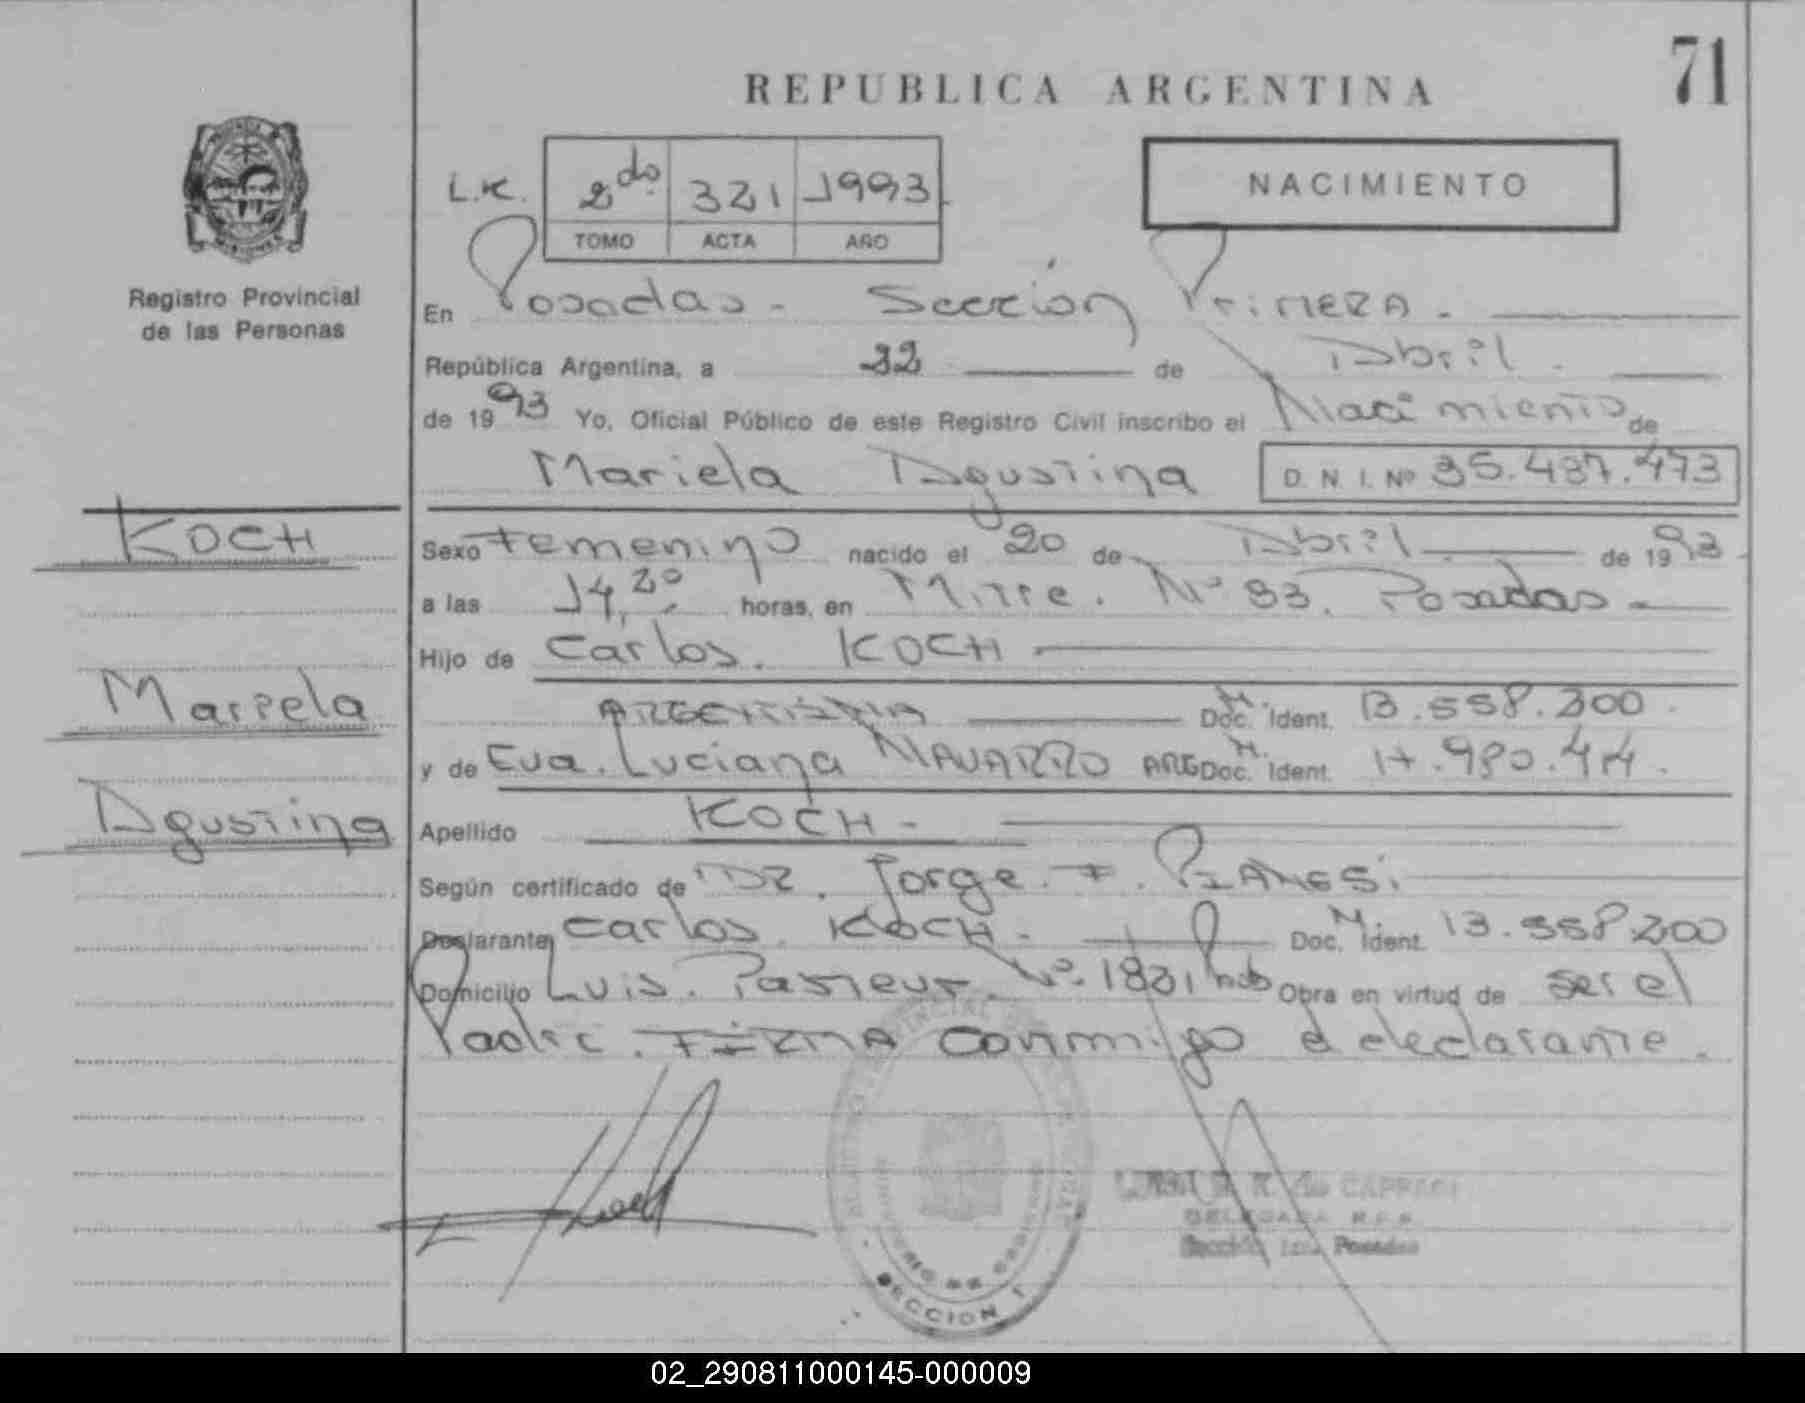 71
REPUBLICA ARGENTINA
L.K. 2do 321 1993
TOMO ACTA AÑO
NACIMIENTO
Registro Provincial
de las Personas
En Posadas - Sección Primera.
República Argentina, a 22 de Abril.
de 1993 Yo, Oficial Público de este Registro Civil inscribo el Nacimiento de
Mariela Agustina D. N. I. Nº 35.487.473
KOCH
Mariela
Agustina
Sexo Femenino nacido el 20 de Abril de 1993
a las 14,20 horas, en Mitre. Nº 93. Posadas
Hijo de Carlos. KOCH
ARGENTINA Doc. Ident. 13.558.200.
y de Eva. Luciana NAVARRO ARG Doc. Ident.
Apellido KOCH -
Según certificado de DR. Jorge. F.
Declarante Carlos KOCH - Doc. Ident. 13.558.200
Domicilio Luis. Pasteur. Nº. 1821 Obra en virtud de ser el
Padre. FIRMA conmigo el declarante.
de CAPRARI
DELEGADA R.P.P.
Sección 1ra. Posadas
SECCION 1
02_290811000145-000009